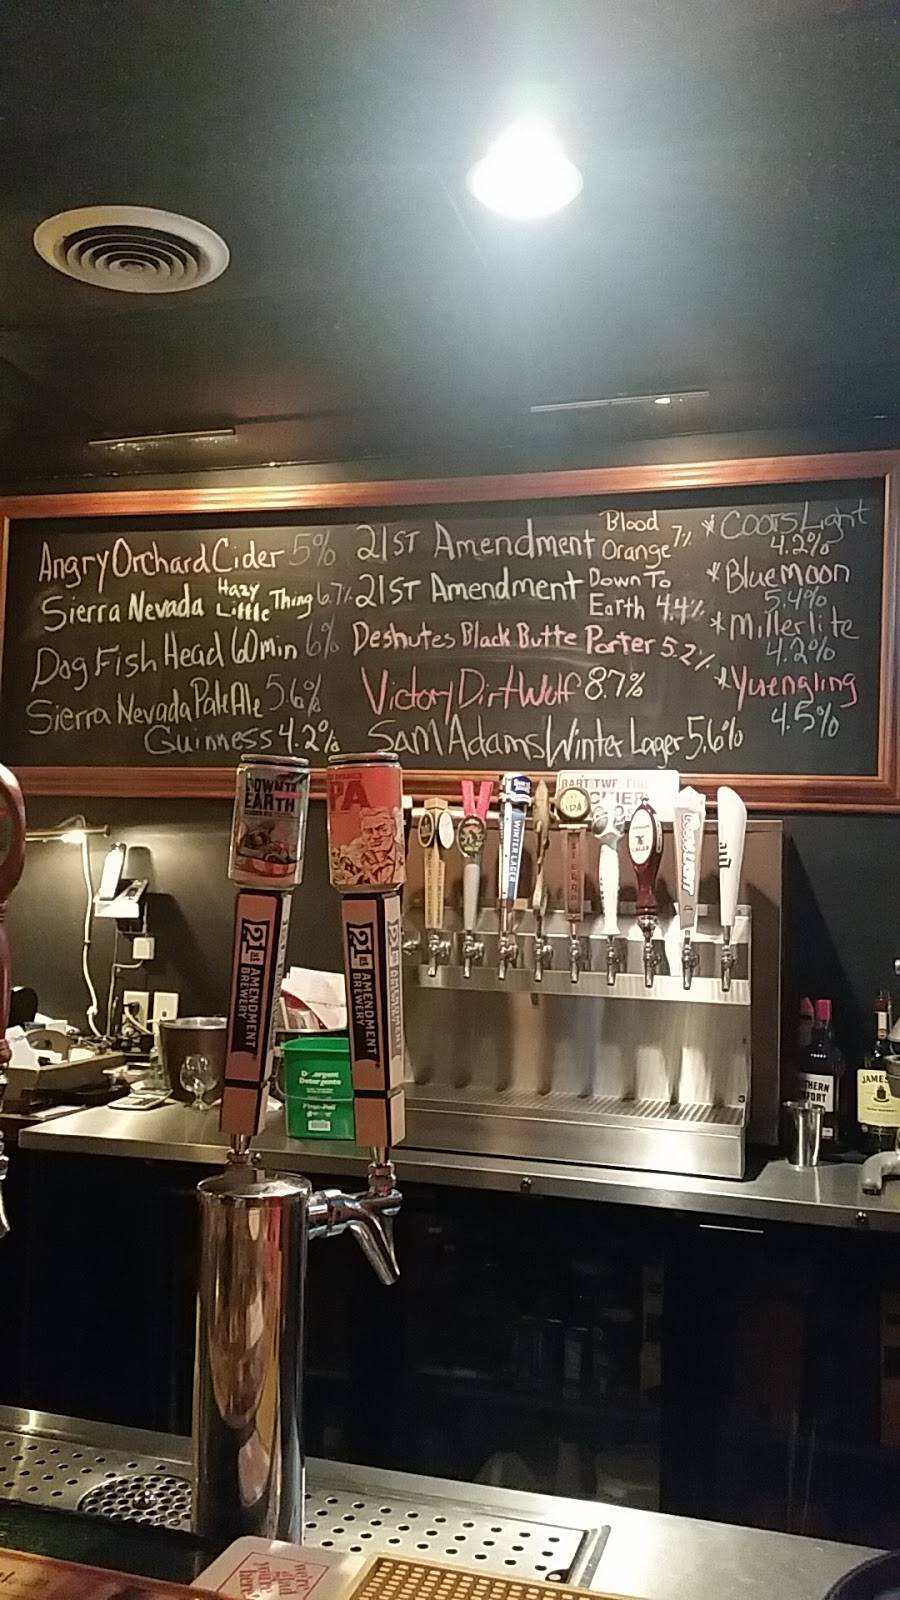 Angry Orchard Cider 5%
Sierra Nevada Hazy Little Thing 6.7%
Dog Fish Head 60 min 6%
Sierra Nevada Pale Ale 5.6%
Guinness 4.2%
21ST Amendment Blood Orange 7%
21ST Amendment Down To Earth 4.4%
Deshutes Black Butte Porter 5.2%
Victory Dirt Wolf 8.7%
Sam Adams Winter Lager 5.6%
* Coors Light
4.2%
* Blue Moon
5.4%
* Miller lite
4.2%
* Yuengling
4.5%
EARTH
PA
21ST AMENDMENT BREWERY
21ST AMENDMENT BREWERY
WINTER LAGER
LAGER
Detergente
JAMES